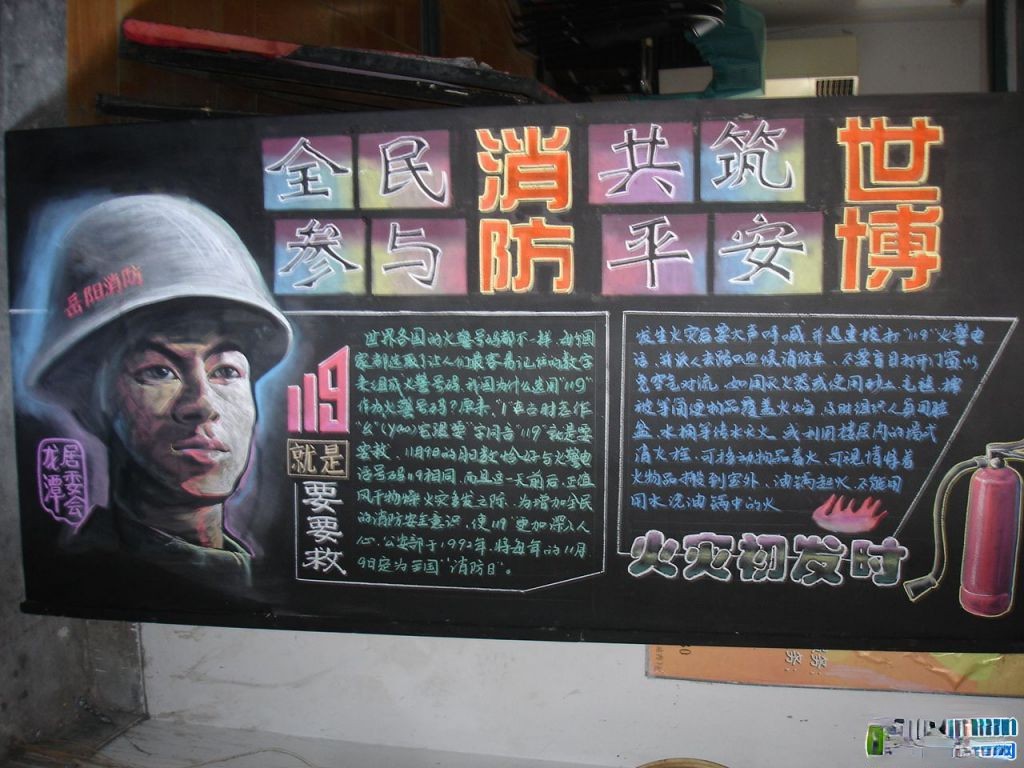 全民 消防 共筑 世博
参与 平安
岳阳消防
龙潭
居委会
119
就是
要要救
世界各国的火警号码都不一样,但各国
家都选取了让人们最容易记住的数字
来组成火警号码。我国为什么选用"119"
作为火警号码?原来,"1"在古时念作
"幺"(yao)它跟"要"字同音"119"就是要
要救。11月9日的月日数恰好与火警电
话号码119相同,而且这一天前后,正值
风干物燥火灾多发之际,为增加全民
的消防安全意识,使"119"更加深入人
心,公安部于1992年,将每年的11月
9日定为全国"消防日"。
发生火灾后要大声呼喊,并迅速拨打"119"火警电
话,并派人去路口迎候消防车,不要盲目打开门窗以
免空气对流,如用灭火器或使用砂土毛毯、棉
被等简便物品覆盖火焰,及时组织人员用脸
盆、水桶等传水灭火,或利用楼层内的墙式
消火栓,可移动物品着火,可视情将着
火物品搬到室外,油锅起火,不能用
用水浇油锅中的火
火灾初发时